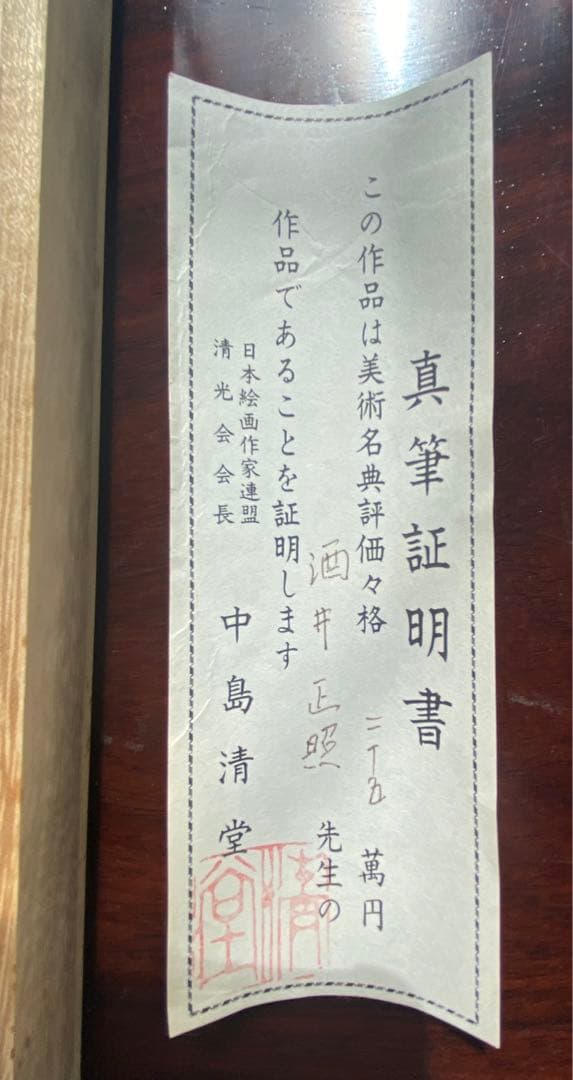 真筆証明書
この作品は美術名典評価々格 二十五 萬円
酒井正照 先生の
作品であることを証明します
日本絵画作家連盟
清光会会長
中島清堂
清堂